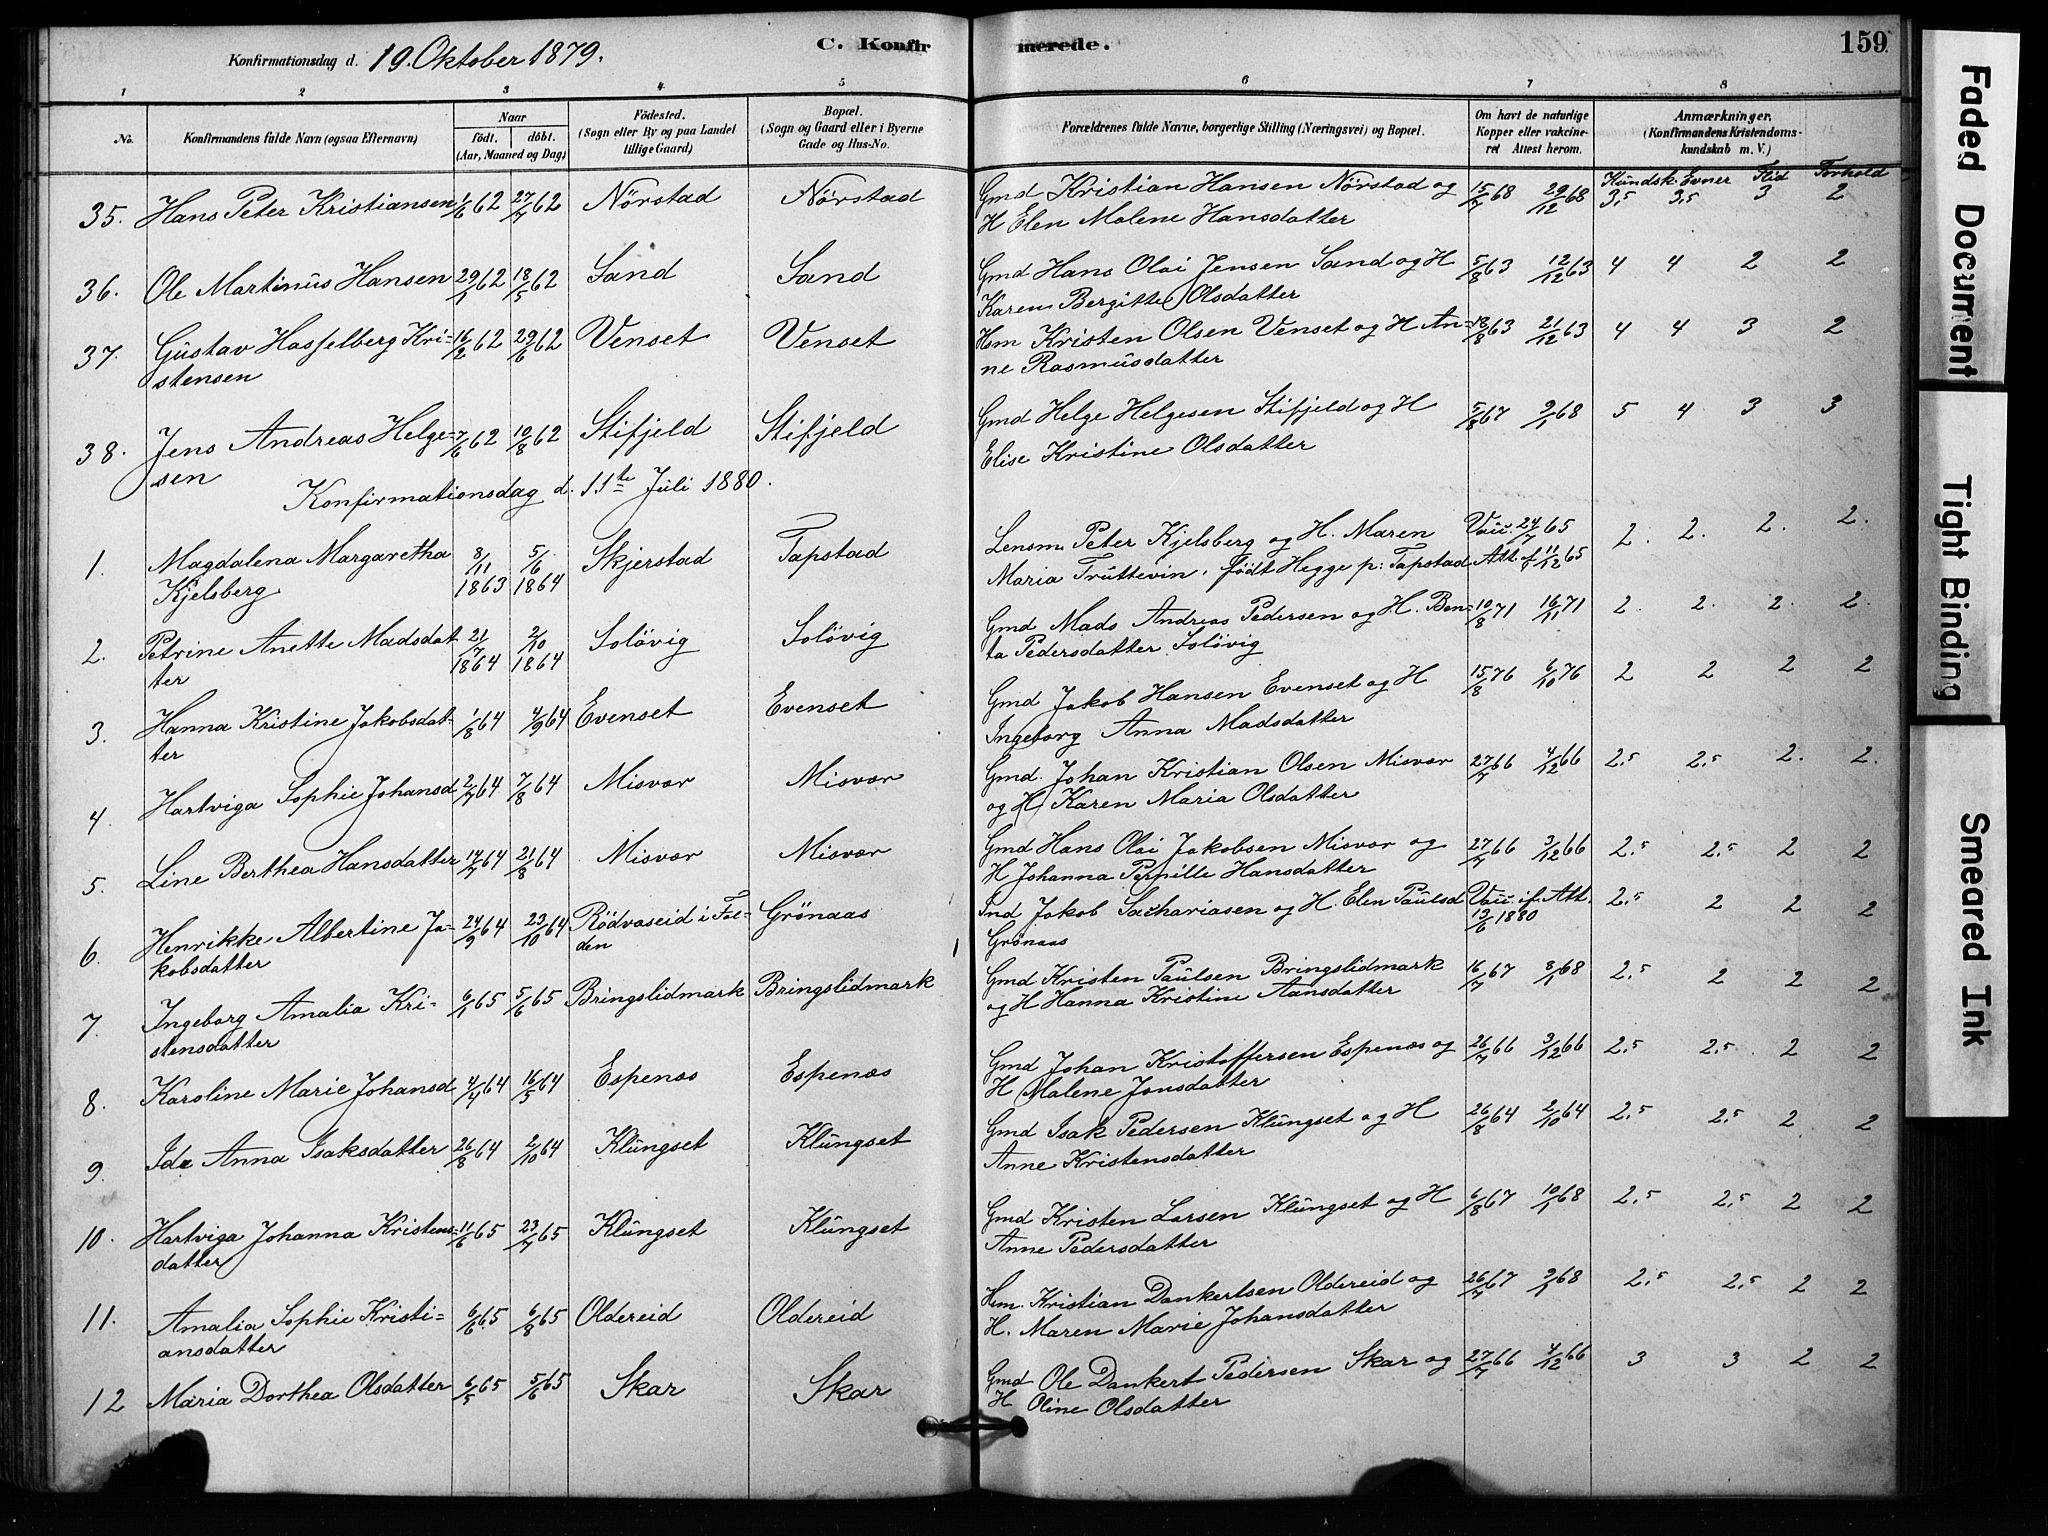 Konfirmationsdag d. 19. Oktober 1879. C. Konfir merede. 159
1 2 3 4 5 6 7 8
No. Konfirmandens fulde Navn (ogsaa Efternavn) Naar födt. döbt. (Aar, Maaned og Dag) Födested. (Sogn eller By og paa Landet tillige Gaard) Bopæl. (Sogn og Gaard eller i Byerne Gade og Hus-No. Forældrenes fulde Navne, borgerlige Stilling (Næringsvei) og Bopæl. Om havt de naturlige Kopper eller vakcineret Attest herom. Anmærkninger. (Konfirmandens Kristendomskundskab m. V.)
Kundsk. Evner Flid Forhold
35. Hans Peter Kristiansen 1/6 62 27/7 62 Nörstad Nörstad Gmd Kristian Hansen Nörstad og 15/7 68 29/12 68 3,5 3,5 3 2
H Elen Malene Hansdatter
36. Ole Martinus Hansen 29/1 62 18/5 62 Sand Sand Gmd Hans Olai Jensen Sand og H 5/8 63 12/12 63 4 4 2 2
Karen Bergitte Olsdatter
37. Gustav Hasselberg Kri- 16/2 62 29/6 62 Venset Venset Hsm Kristen Olsen Venset og H An- 18/8 63 21/12 63 4 4 3 2
stensen ne Rasmusdatter
38. Jens Andreas Helge- 7/6 62 10/8 62 Stifjeld Stifjeld Gmd Helge Helgesen Stifjeld og H 5/8 67 9/1 68 5 4 3 3
sen Elise Kristine Olsdatter
Konfirmationsdag d. 11te Juli 1880.
1. Magdalena Margaretha 8/11 5/6 Skjerstad Tapstad Lensm. Peter Kjelsberg og H. Maren Vacc. 24/7 65 2. 2. 2. 2.
Kjelsberg 1863 1864 Maria Truttevin, född Hegge p: Tapstad Att. af 11/12 65
2. Petrine Anette Madsdat- 21/7 2/10 Solövig Solövig Gmd Mads Andreas Pedersen og H. Ben- 10/8 71 16/11 71 2. 2. 2. 2.
ter 1864 1864 ta Pedersdatter Solövig
3. Hanna Kristine Jakobsdat- 1/8 64 4/9 64 Evenset Evenset Gmd Jakob Hansen Evenset og H 15/8 76 6/10 76 2 2 2 2
ter Ingeborg Anna Madsdatter
4. Hartviga Sophie Johansd 2/7 64 7/8 64 Misvær Misvær Gmd. Johan Kristian Olsen Misvær 27/7 66 4/12 66 2.5 2.5 2. 2.
og H Karen Maria Olsdatter
5. Line Berthea Hansdatter 14/7 64 21/8 64 Misvær Misvær Gmd Hans Olai Jakobsen Misvær og 27/7 66 3/12 66 2,5 2,5 2 2
H Johanna Pernille Hansdatter
6. Henrikke Albertine Ja- 24/9 64 23/10 64 Rödvaseid i Fol- Grönaas Ind Jakob Sachariasen og H. Elen Paulsd Vacc. if. Att. 2.5 2 2 2
kobsdatter den Grönaas 13/6 1880
7. Ingeborg Amalia Kri- 6/1 65 5/6 65 Bringslidmark Bringslidmark Gmd Kristen Paulsen Bringslidmark 16/7 67 8/1 68 2.5 2 2 2
stensdatter og H Hanna Kristine Aansdatter
8. Karoline Marie Johansd 4/4 64 16/5 64 Espenæs Espenæs Gmd Johan Kristoffersen Espenæs og 26/7 66 3/12 66 2.5 2.5 2 2
H Malene Jonsdatter
9. Ida Anna Isaksdatter 26/8 64 2/10 64 Klungset Klungset Gmd Isak Pedersen Klungset og H 26/8 64 2/10 64 2.5 2.5 2 2
Anne Kristensdatter
10. Hartviga Johanna Kristens- 11/6 65 23/7 65 Klungset Klungset Gmd Kristen Larsen Klungset og H 6/8 67 10/1 68 2.5 2.5 2 2
datter Anne Pedersdatter
11. Amalia Sophie Kristi- 6/6 65 6/8 65 Oldereid Oldereid Hsm. Kristian Dankertsen Oldereid og 26/7 67 9/1 68 2.5 2.5 2 2
ansdatter H. Maren Marie Johansdatter
12 Maria Dorthea Olsdatter 6/5 65 5/6 65 Skar Skar Gmd Ole Dankert Pedersen Skar og 27/7 66 4/12 66 3 3 2 2
H Oline Olsdatter
Faded Document
Tight Binding
Smeared Ink